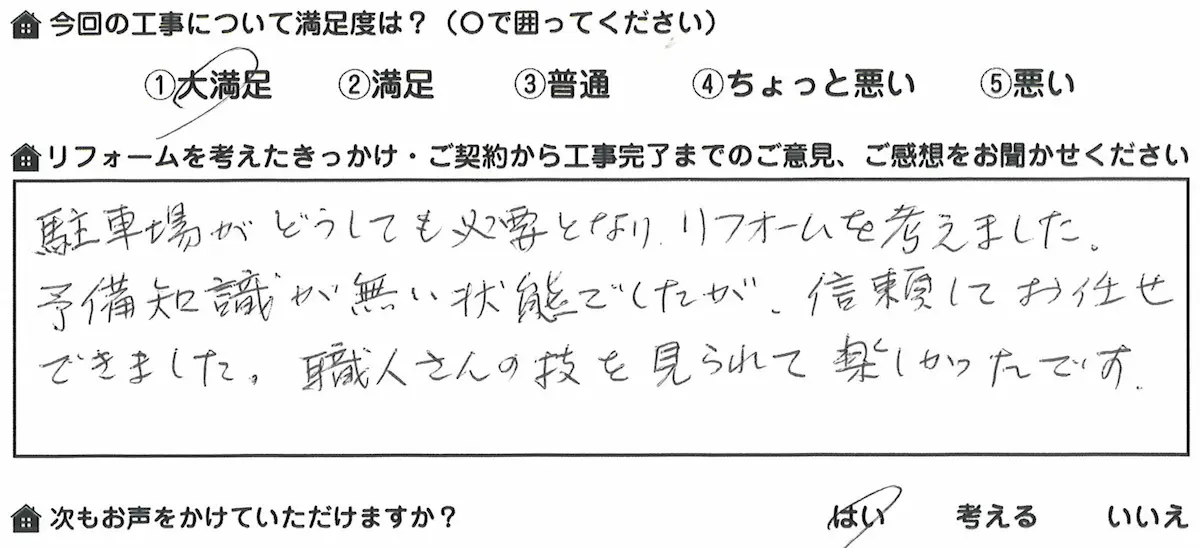 今回の工事について満足度は？（〇で囲ってください）
①大満足 ②満足 ③普通 ④ちょっと悪い ⑤悪い
リフォームを考えたきっかけ・ご契約から工事完了までのご意見、ご感想をお聞かせください
駐車場がどうしても必要となり、リフォームを考えました。
予備知識が無い状態でしたが、信頼してお任せ
できました。職人さんの技を見られて楽しかったです。
次もお声をかけていただけますか？ はい 考える いいえ